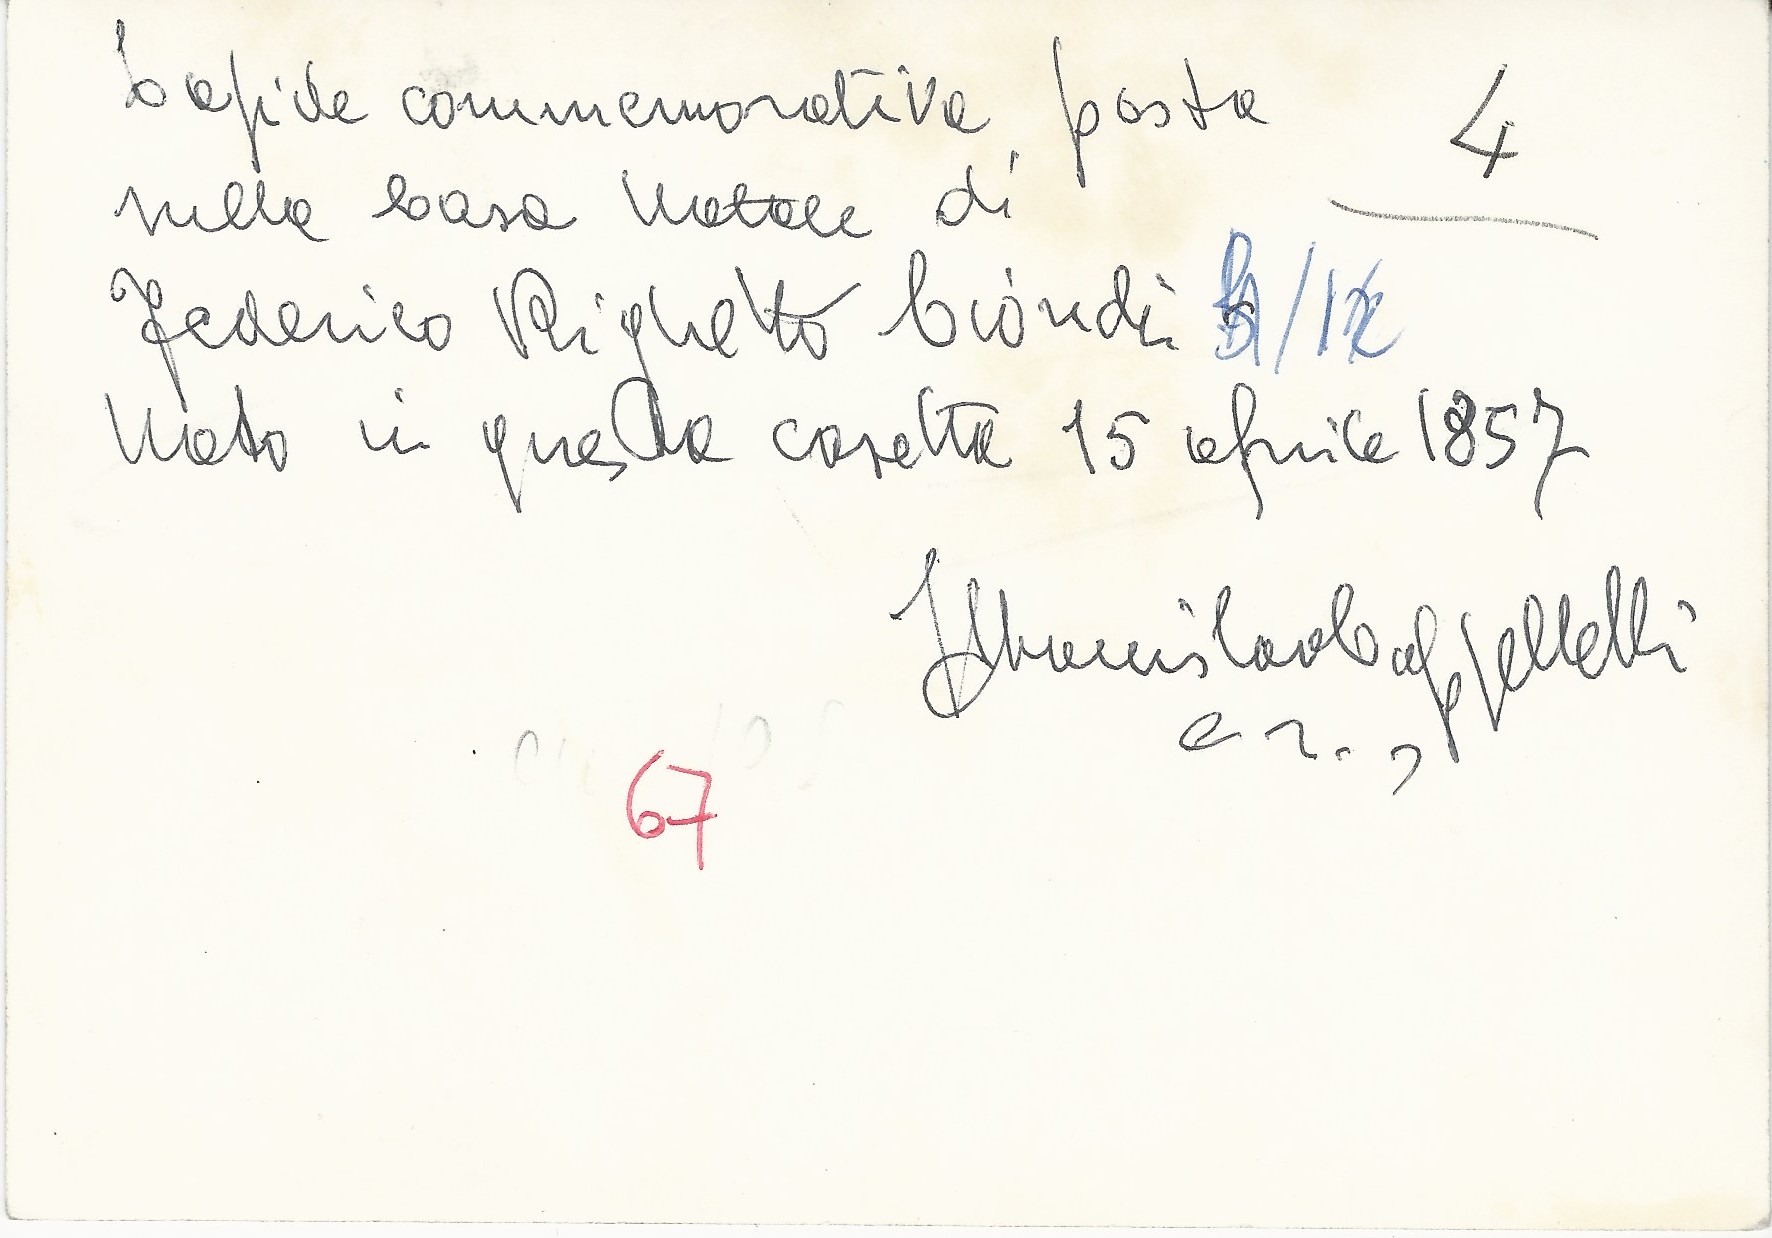 Lapide commemorativa posta 4
nella casa Natale di
Federico Righetto Biondi
Nato in questa casetta 15 aprile 1857
67